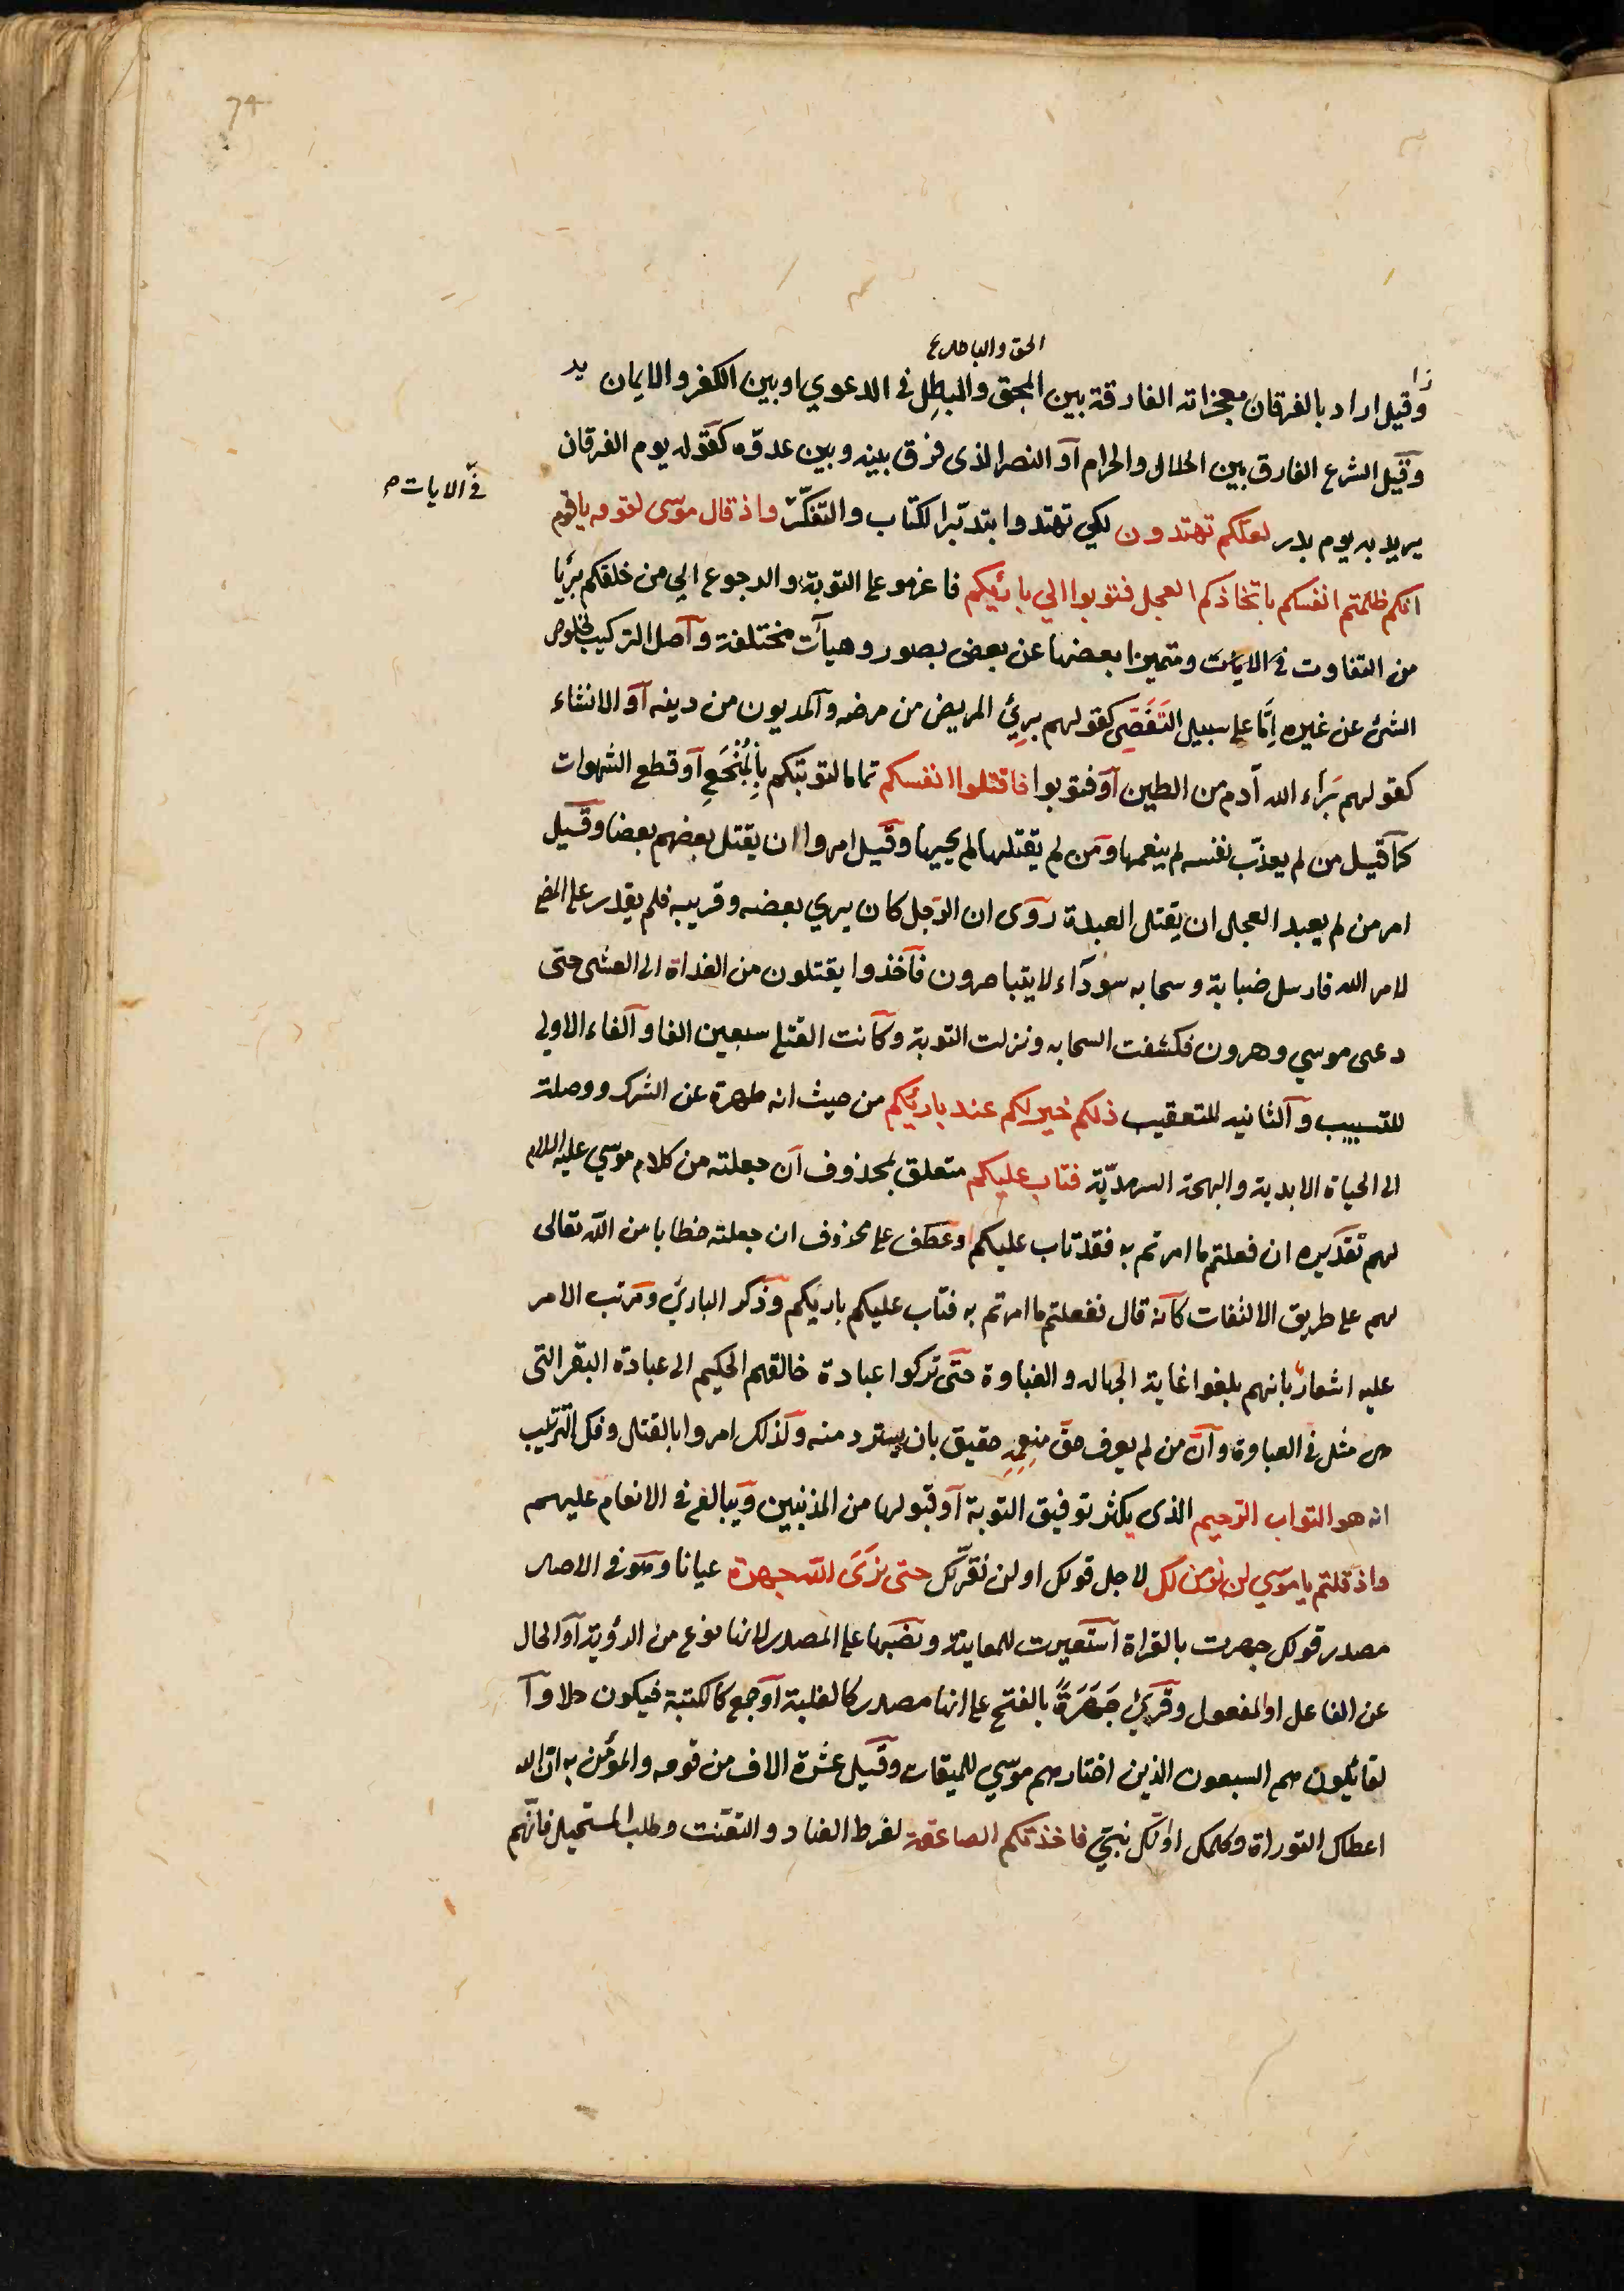 74
الحق والباطل
وقيل اراد بالفرقان معجزاته الفارقة بين المحق والمبطل في الدعوي او بين الكفر والايمان
وقيل الشرع الفارق بين الحلال والحرام او النصر الذي فرق بينه وبين عدوّه كقوله يوم الفرقان
في الايات
يريد به يوم بدر لعلكم تهتدون لكي تهتدوا بتدبّر الكتاب والتفكّر واذ قال موسى لقومه ياقوم
انكم ظلمتم انفسكم باتخاذكم العجل فتوبوا الي بارئكم فاعزموا على التوبة والرجوع الي من خلقكم بريا
من التفاوت في الايات ومتميزا بعضها عن بعض بصور وهيأت مختلفة واصل التركيب لخلوص
الشئ عن غيره اِمَّا على سبيل التَفَصِّي كقولهم بريئ المريض من مرضه والمديون من دينه او الانشاء
كقولهم بَرَاء الله آدم من الطين او فتوبوا فاقتلوا انفسكم تماما لتوبتكم بِالْبُخَعِ او قطع الشهوات
كما قيل من لم يعذّب نفسه لم ينعمها ومن لم يقتلها لم يحييها وقيل امروا ان يقتل بعضهم بعضا وقيل
امر من لم يعبد العجل ان يقتل العبدة روى ان الرجل كان يري بعضه وقريبه فلم يقدر على المضي
لامر الله فارسل ضبابة وسحابه سوداء لايتباصرون فاخذوا يقتلون من الغداة الى العشى حتى
دعى موسي وهرون فكشفت السحابه ونزلت التوبة وكانت القتلى سبعين الفا والفاء الاولي
للتسبيب والثانيه للتعقيب ذلكم خير لكم عند بارئكم من حيث انه طهرة عن الشرك ووصلة
الى الحياة الابدية والبهجة السرمديّة فتاب عليكم متعلق بمحذوف ان جعلته من كلام موسي عليه السلام
لهم تقديره ان فعلتم ما امرتم به فقد تاب عليكم او عطف على محذوف ان جعلته خطابا من الله تعالى
لهم على طريق الالتفات كأنه قال ففعلتم ما امرتم به فتاب عليكم باريكم وذكر الباري ومرتب الامر
عليه اشعارٌ بانهم بلغوا غاية الجهاله والغباوة حتى تركوا عبادة خالقهم الحكيم الى عبادة البقر التى
هى مثل في الغباوة وانّ من لم يعرف حقّ منعِمِهِ حقيق بان يسترد منه وكذلك امروا بالقتل وفك التركيب
انه هو التواب الرحيم الذي يكثر توفيق التوبة او قبولها من المذنبين ويبالغ في الانعام عليهم
واذ قلتم ياموسي لن نومن لك لاجل قولك او لن نُقرَّ لك حتى نرَى الله جهرة عيانا وهو في الاصل
مصدر قولك جهرت بالقراة استعيرت للمعاينة ونصبها على المصدر لانها نوع من الرؤية او الحال
عن الفاعل او المفعول وقريئ جَهَرَةً بالفتح على انها مصدر كالغلبة او جمع كالكتبة فيكون حالا وا
لقائلون هم السبعون الذين اختارهم موسي للميقات وقيل عشرة الاف من قومه والمؤمن به ان الله
اعطاك التوراة وكلمك او انّك نبيّ فاخذتكم الصاعقة لفرط العناد والتعنّت وطلب المستحيل فانّهم